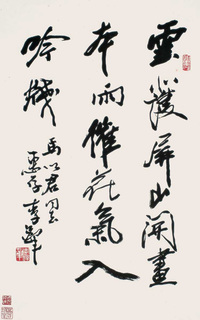 雲護屏山開畫
本雨催花氣入
吟牋
馬以君同志
惠存 李